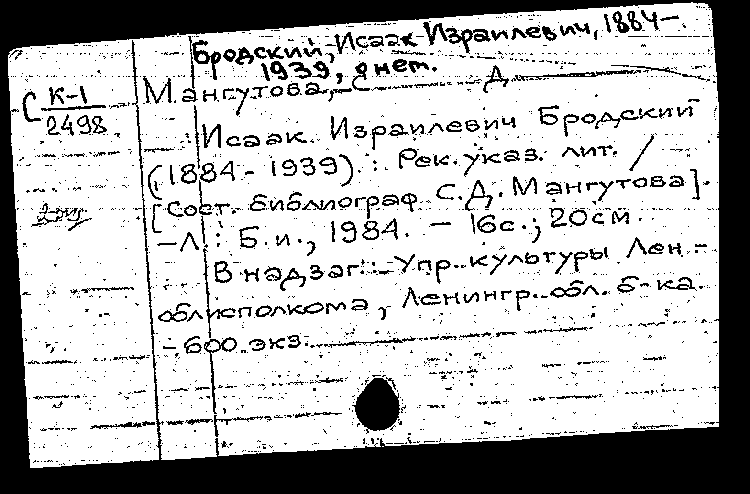 Бродский, Исаак Израилевич, 1884–
1939, о нем.
Мангутова, С. Д.
С К-1
2498
Исаак Израилевич Бродский
(1884 - 1939) : Рек. указ. лит. /
[Сост. библиограф С. Д. Мангутова].
– Л. : Б. и., 1984. – 16с.; 20см.
В надзаг. : Упр. культуры Лен-
облисполкома, Ленингр. обл. б-ка.
– 600 экз.